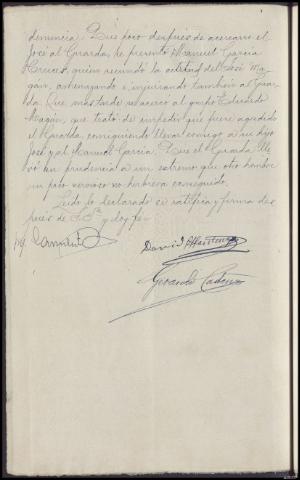 denuncia. Que poco después de acercarse el
José al Guarda, se presentó Manuel García
quien secundó la actitud del José Ma-
gán, amenazando e injuriando también al Guar-
da. Que más tarde se acercó al grupo Eduardo
Magán, que trató de impedir que fuera agredido
el Guarda, consiguiendo llevar consigo a su hijo
José y al Manuel García. Que el Guarda lle-
vó su prudencia a un extremo que otro hombre
un poco nervioso no hubiera conseguido.
Leído lo declarado se ratifica y firma des-
pués de S.Sª y doy fe=
Sarmiento
David
Gerardo